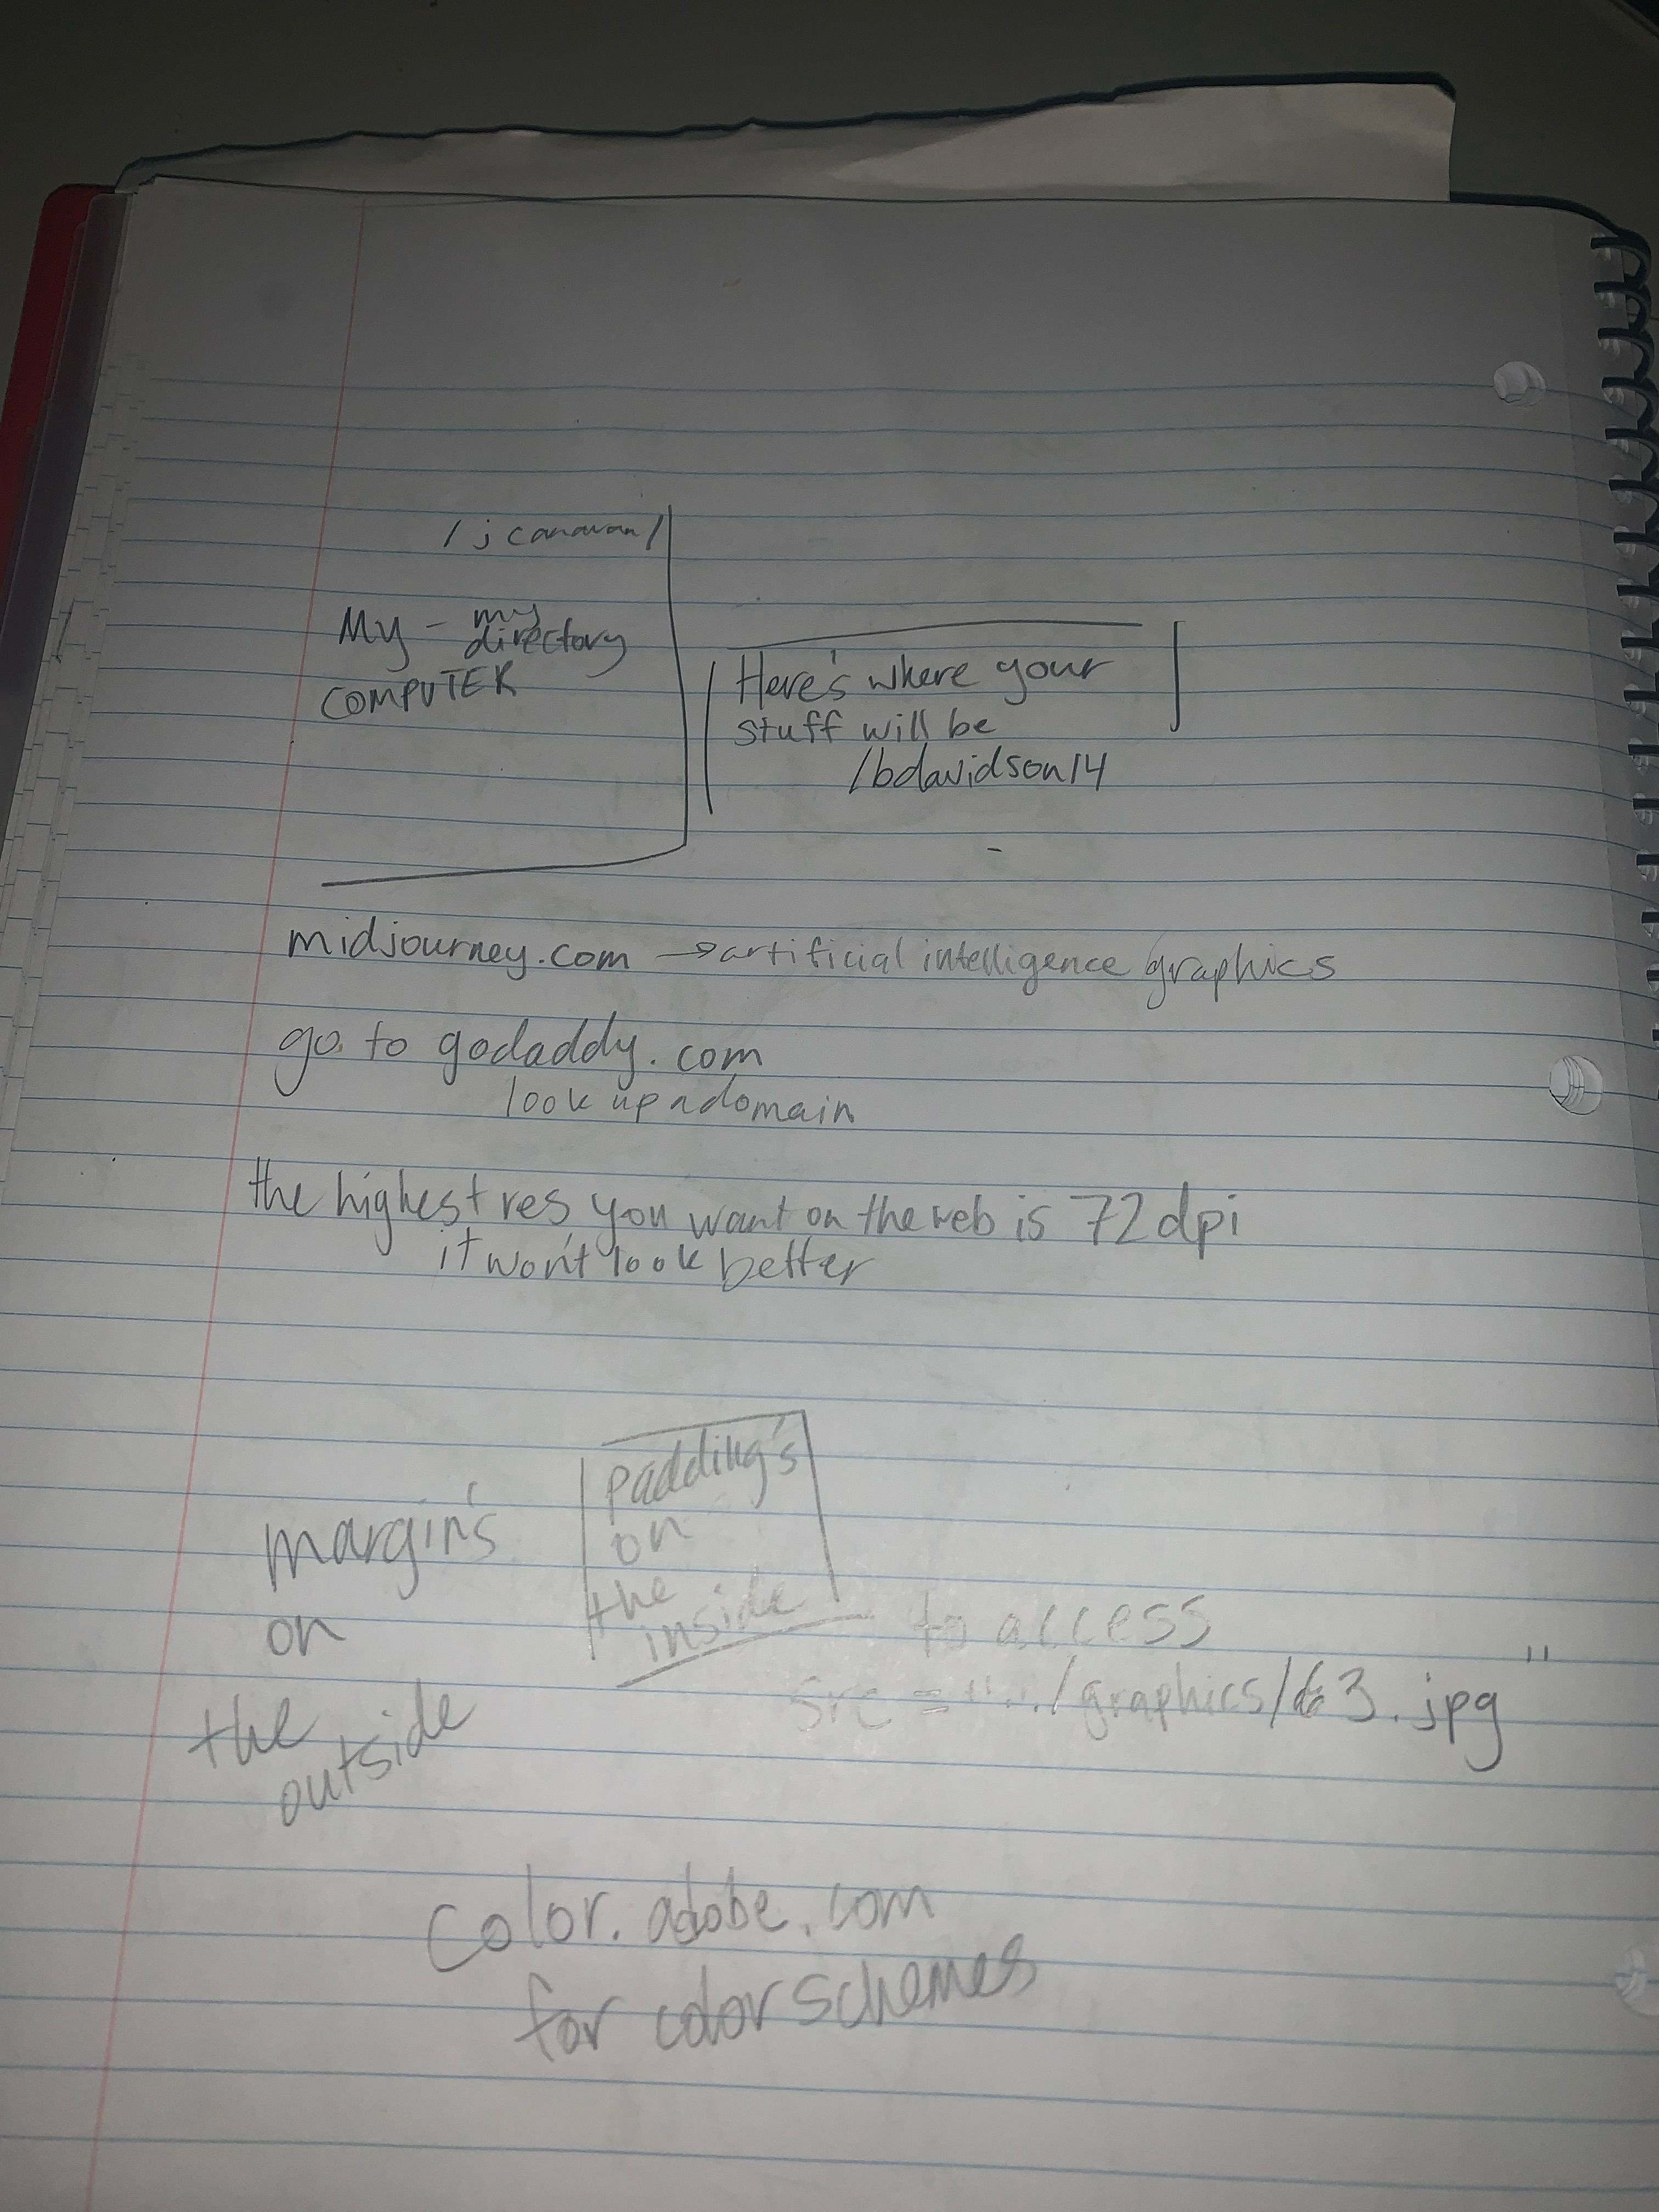 /jcanavan/
My - my
directory
COMPUTER
Here's where your
stuff will be
/bdavidson14
midjourney.com → artificial intelligence graphics
go to godaddy.com
look up a domain
the highest res, you want on the web is 72dpi
it won't look better
padding's
on
the
inside
margin's
on
the
outside
to access
src = "../graphics/63.jpg"
color.adobe.com
for color schemes